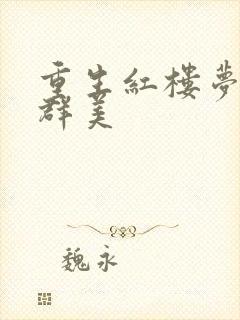 重生紅樓夢
群美
魏永